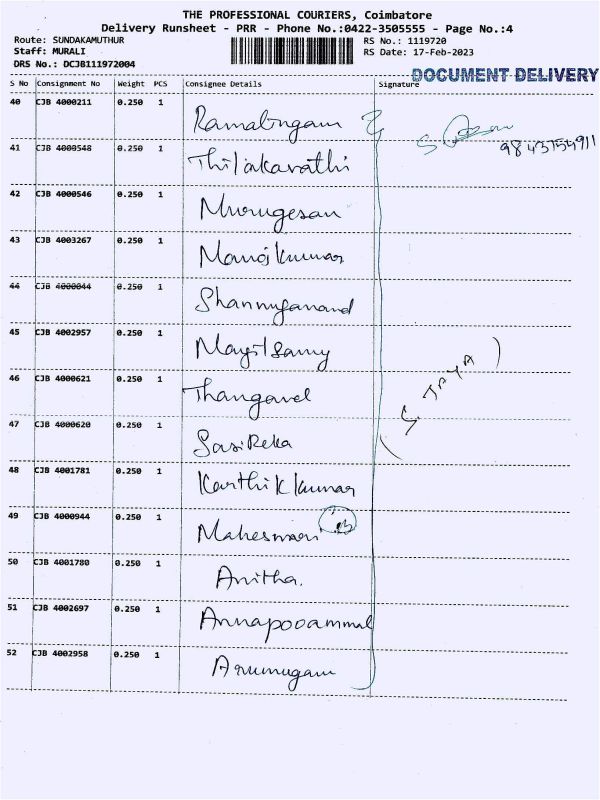 THE PROFESSIONAL COURIERS, Coimbatore
Delivery Runsheet - PRR - Phone No.:0422-3505555 - Page No.:4
Route: SUNDAKAMUTHUR
Staff: MURALI
DRS No.: DCJB111972004
RS No.: 1119720
RS Date: 17-Feb-2023
DOCUMENT DELIVERY
S No Consignment No Weight PCS Consignee Details Signature
40 CJB 4000211 0.250 1 Ramalingam
9843754911
41 CJB 4000548 0.250 1 Thilakavathi
42 CJB 4000546 0.250 1 Murugesan
43 CJB 4003267 0.250 1 Manoj kumar
44 CJB 4000044 0.250 1 Shanmuganand
45 CJB 4002957 0.250 1 Mayilsamy
(S. JAYA)
46 CJB 4000621 0.250 1 Thangavel
47 CJB 4000620 0.250 1 SasiReka
48 CJB 4001781 0.250 1 Karthik kumar
49 CJB 4000944 0.250 1 Maheswari
50 CJB 4001780 0.250 1 Anitha.
51 CJB 4002697 0.250 1 Annapooammal
52 CJB 4002958 0.250 1 Arumugam